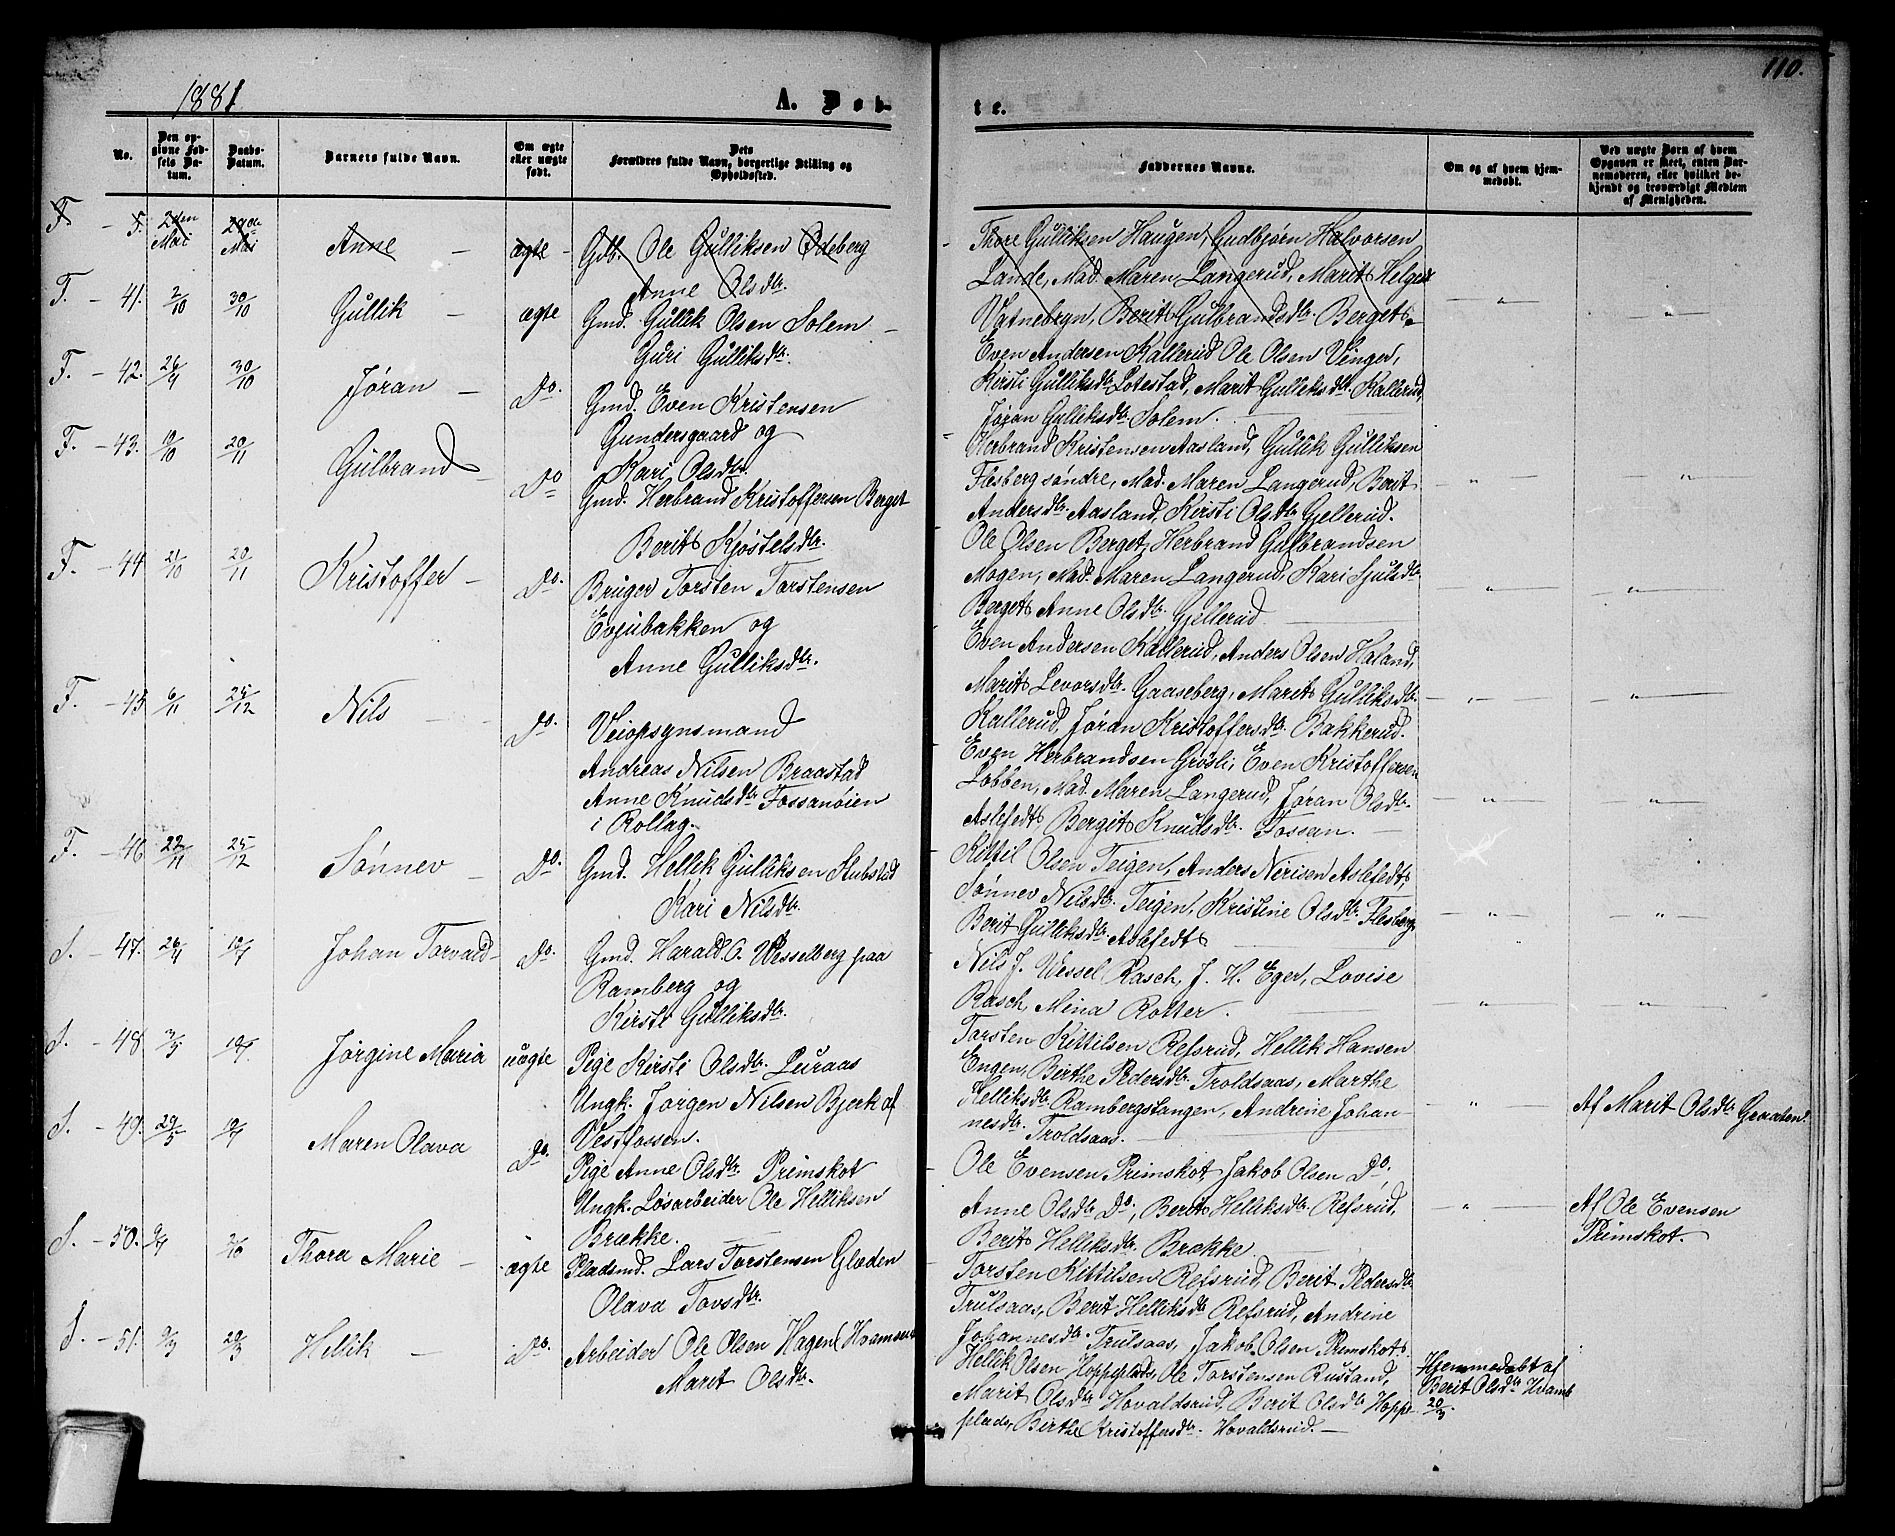 1881
A. Døb-
te.
110.
No.
Den op-
givne Fød-
sels Da-
tum.
Daabs-
Datum.
Barnets fulde Navn.
Om ægte
eller uægte
født.
Dets
Forældres fulde Navn, borgerlige Stilling og
Opholdssted.
Faddernes Navne.
Om og af hvem hjem-
medøbt.
Ved uægte Børn af hvem
Opgaven er skeet, enten Bar-
nemoderen, eller hvilket be-
kjendt og troværdigt Medlem
af Menigheden.
F. - 5. 2den Mai 29de Mai Anne - ægte - Gdb. Ole Gulliksen Ødeberg
Anne Olsdtr.
Thore Gulliksen Haugen, Gudbjørn Halvorsen
Lande, Mad. Maren Langerud, Marit Helges
Vatnebryn, Berit Gulbrandsdtr. Berget.
F. - 41. 2/10 30/10 Gullik - ægte Gmd. Gullik Olsen Solem -
Guri Gulliksdtr.
Even Andersen Kallerud Ole Olsen Vinger,
Kirsti Gulliksdtr. Lotestad, Marit Gulliksdtr. Kallerud,
Jøran Gulliksdtr. Solem.
F. - 42. 26/4 30/10 Jøran - Do. Gmd. Even Kristensen
Gundersgaard og
Kari Olsdtr.
Herbrand Kristensen Aasland, Gullik Gulliksen
Flesberg søndre, Mad. Maren Langerud, Berit
Andersdtr. Aasland, Kirsti Olsdtr. Gjellerud.
F. - 43. 19/10 20/11 Gulbrand - Do Gmd. Herbrand Kristoffersen Berget
Berit Kjøstelsdtr.
Ole Olsen Berget, Herbrand Gulbrandsen
Mogen, Mad. Maren Langerud, Kari Sjulsdtr.
Berget Anne Olsdtr. Gjellerud
F. - 44 21/10 20/11 Kristoffer - Do. Bruger Torsten Torstensen
Evjubakken og
Anne Gulliksdtr.
Even Andersen Kallerud, Anders Olsen Haland,
Marit Levorsdtr. Gaaseberg, Marit Gulliksdtr.
Kallerud, Jøran Kristoffersdtr. Bakkerud.
F. - 45 6/11 25/12 Nils - Do. Veiopsynsmand
Andreas Nilsen Braastad
Anne Knudsdtr. Fossanøien
i Rollag.
Even Herbrandsen Grøsli, Even Kristoffersen
Lobben, Mad. Maren Langerud, Jøran Olsdtr.
Aslefedt Bergit Knudsdtr. Fossan.
F. - 46 22/11 25/12 Sønnev - Do. Gmd. Hellik Gulliksen Stubstad
Kari Nilsdtr.
Kittil Olsen Teigen, Anders Nirisen Aslefedt,
Sønnev Nilsdtr. Teigen, Kristine Olsdtr. Flesberg,
Berit Gulliksdtr. Aslefedt
S. - 47. 26/4 Johan Torvald - Do. Gmd. Harald O. Wesselberg paa
Ramberg og
Kirsti Gulliksdtr.
Nils J. Wessel Rasch, J. H. Eger, Lovise
Rasch, Mina Rotter.
S. - 48 3/5 Jørgine Maria uægte Pige Kirsti Olsdtr. Luraas
Ungk. Jørgen Nilsen Bjerk af
Vestfossen.
Torsten Kittilsen Refsrud, Hellik Hansen
Engen, Berthe Pedersdtr. Troldsaas, Marthe
Helliksdtr. Rambergstangen, Andrine Johan-
nesdtr. Troldsaas.
Af Marit Olsdtr. Graaten.
S. - 49. 29/5 Maren Olava Do. Pige Anne Olsdtr. Primskot
Ungk. Løsarbeider Ole Helliksen
Brække.
Ole Evensen Primskot, Jakob Olsen Do,
Anne Olsdtr. Do, Berit Helliksdtr. Refsrud,
Berit Helliksdtr. Brække.
Af Ole Evensen
Primskot.
S. - 50. 2/10 Thora Marie - ægte Pladsmd. Lars Torstensen Glæden
Olava Tovsdtr.
Torsten Kittilsen Refsrud, Berit Pedersdtr.
Trulsaas, Berit Helliksdtr. Refsrud, Andrine
Johannesdtr. Trulsaas, Jakob Olsen Primskot.
S. - 51. 9/3 20/3 Hellik - Do. Arbeider Ole Olsen Hagen
Marit Olsdtr.
Hellik Olsen Hoppeplads, Ole Torstensen Rustand,
Marit Olsdtr. Hovaldsrud, Berit Olsdtr. Hoppe-
plads, Birthe Kristoffersdtr. Hovaldsrud. -
Hjemmedøbt af
Berit Olsdtr. Hvamb
20/3.